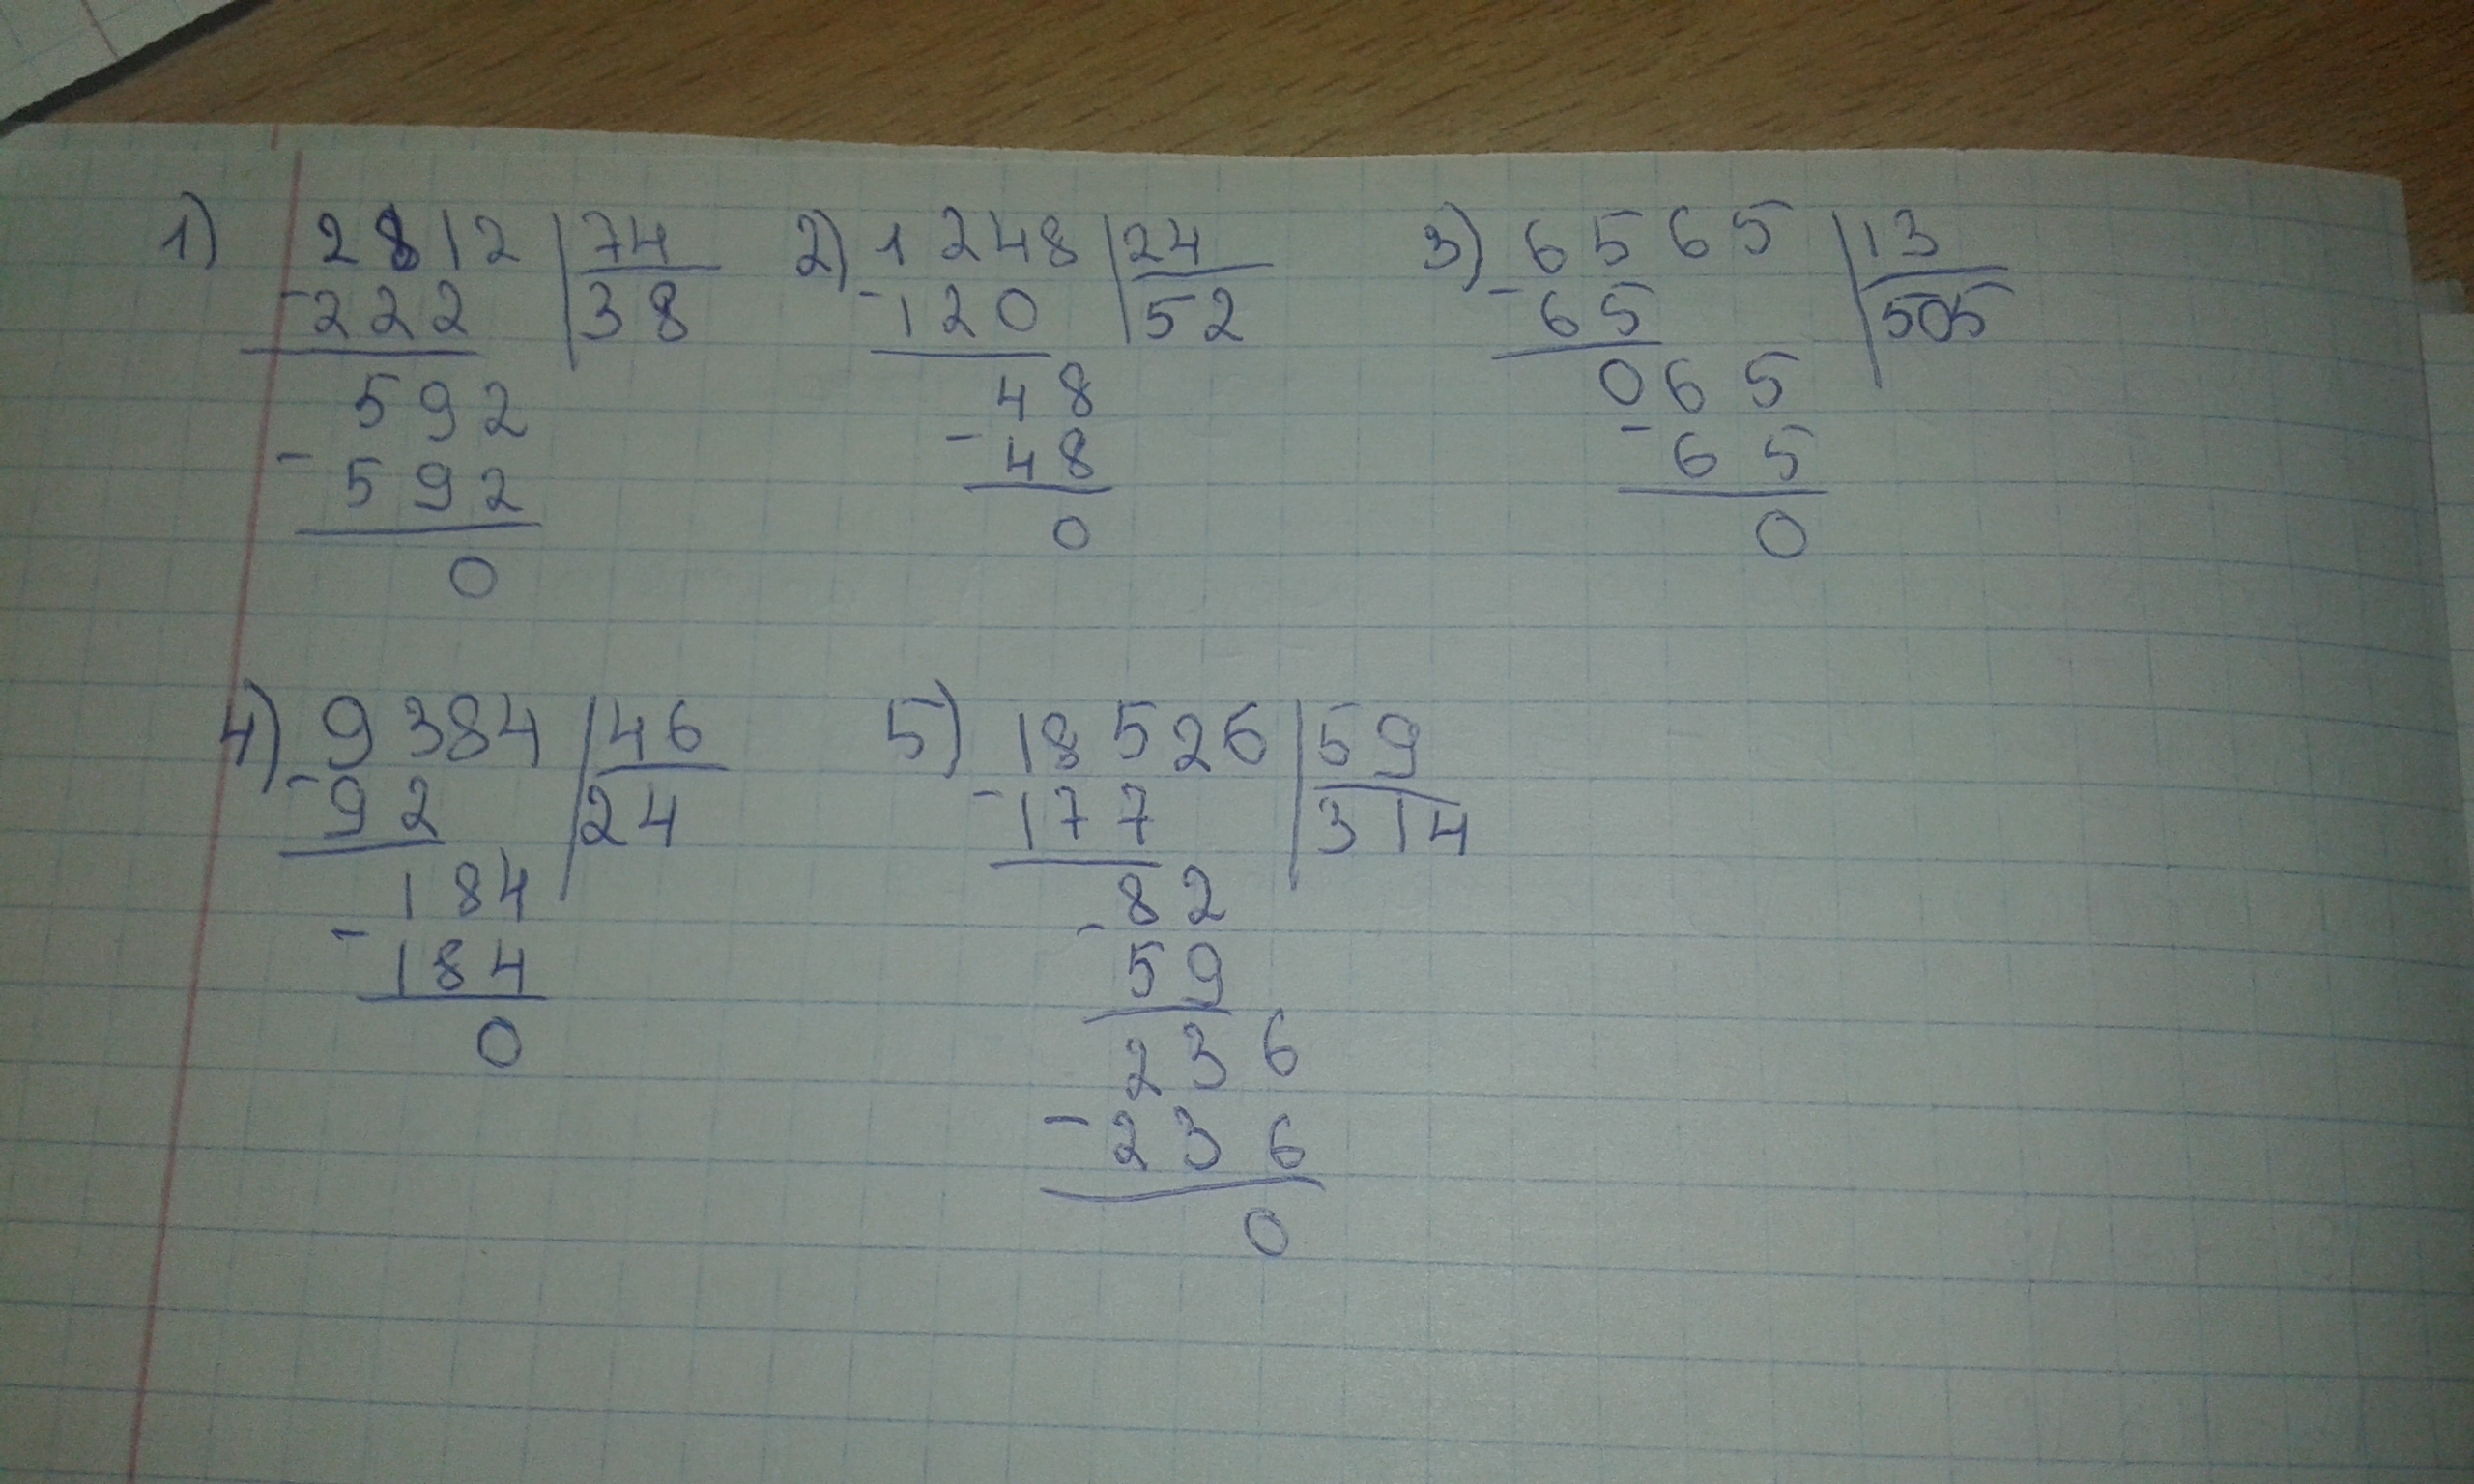 1) 2812 | 74 2) 1248 | 24 3) 6565 | 13
-222 | 38 -120 | 52 -65 | 505
592 48 065
-592 -48 -65
0 0 0
4) 9384 | 46 5) 18526 | 59
-92 | 24 -177 | 314
184 82
-184 -59
0 236
-236
0